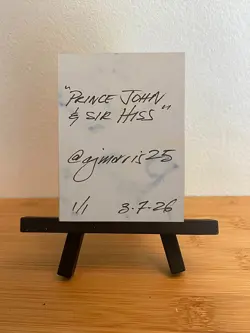 "PRINCE JOHN
& SIR HISS"
@gjmorris25
1/1 3-7-26